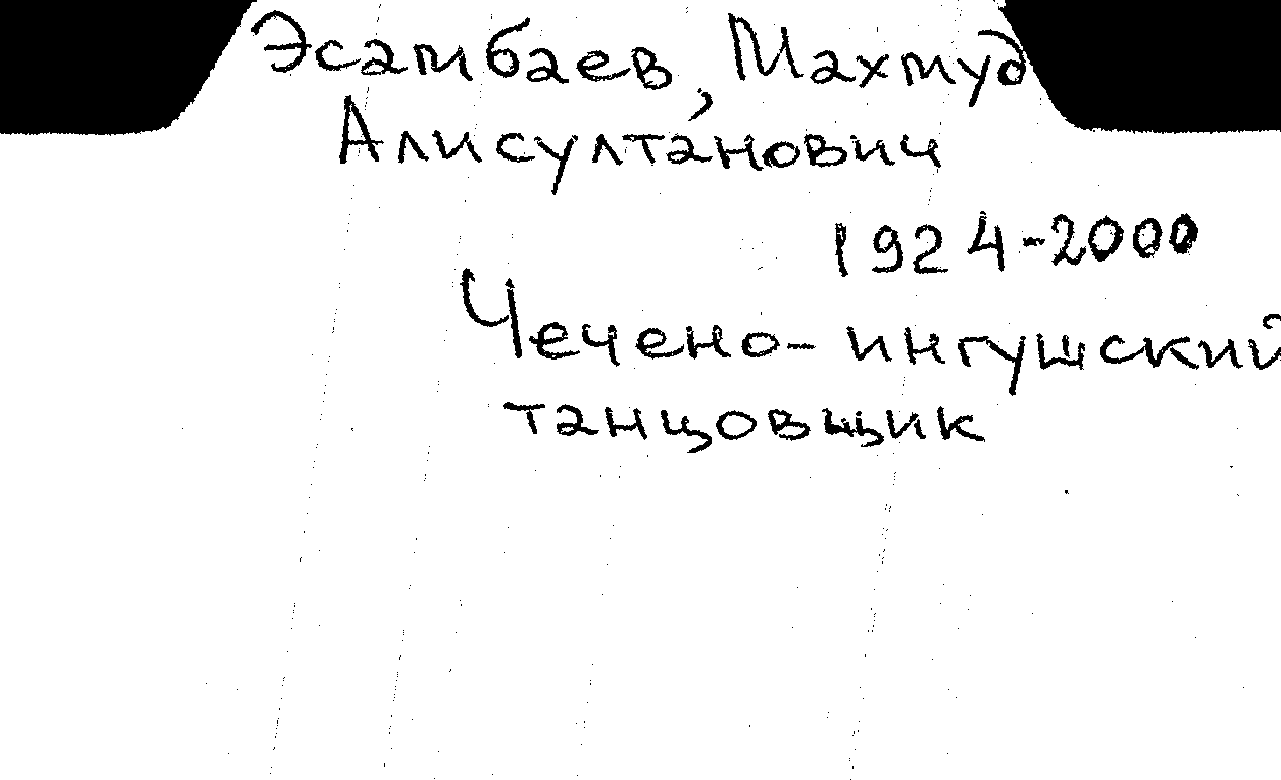 Эсамбаев, Махмуд
Алисулта́нович
1924-2000
Чечено-ингушский
танцовщик